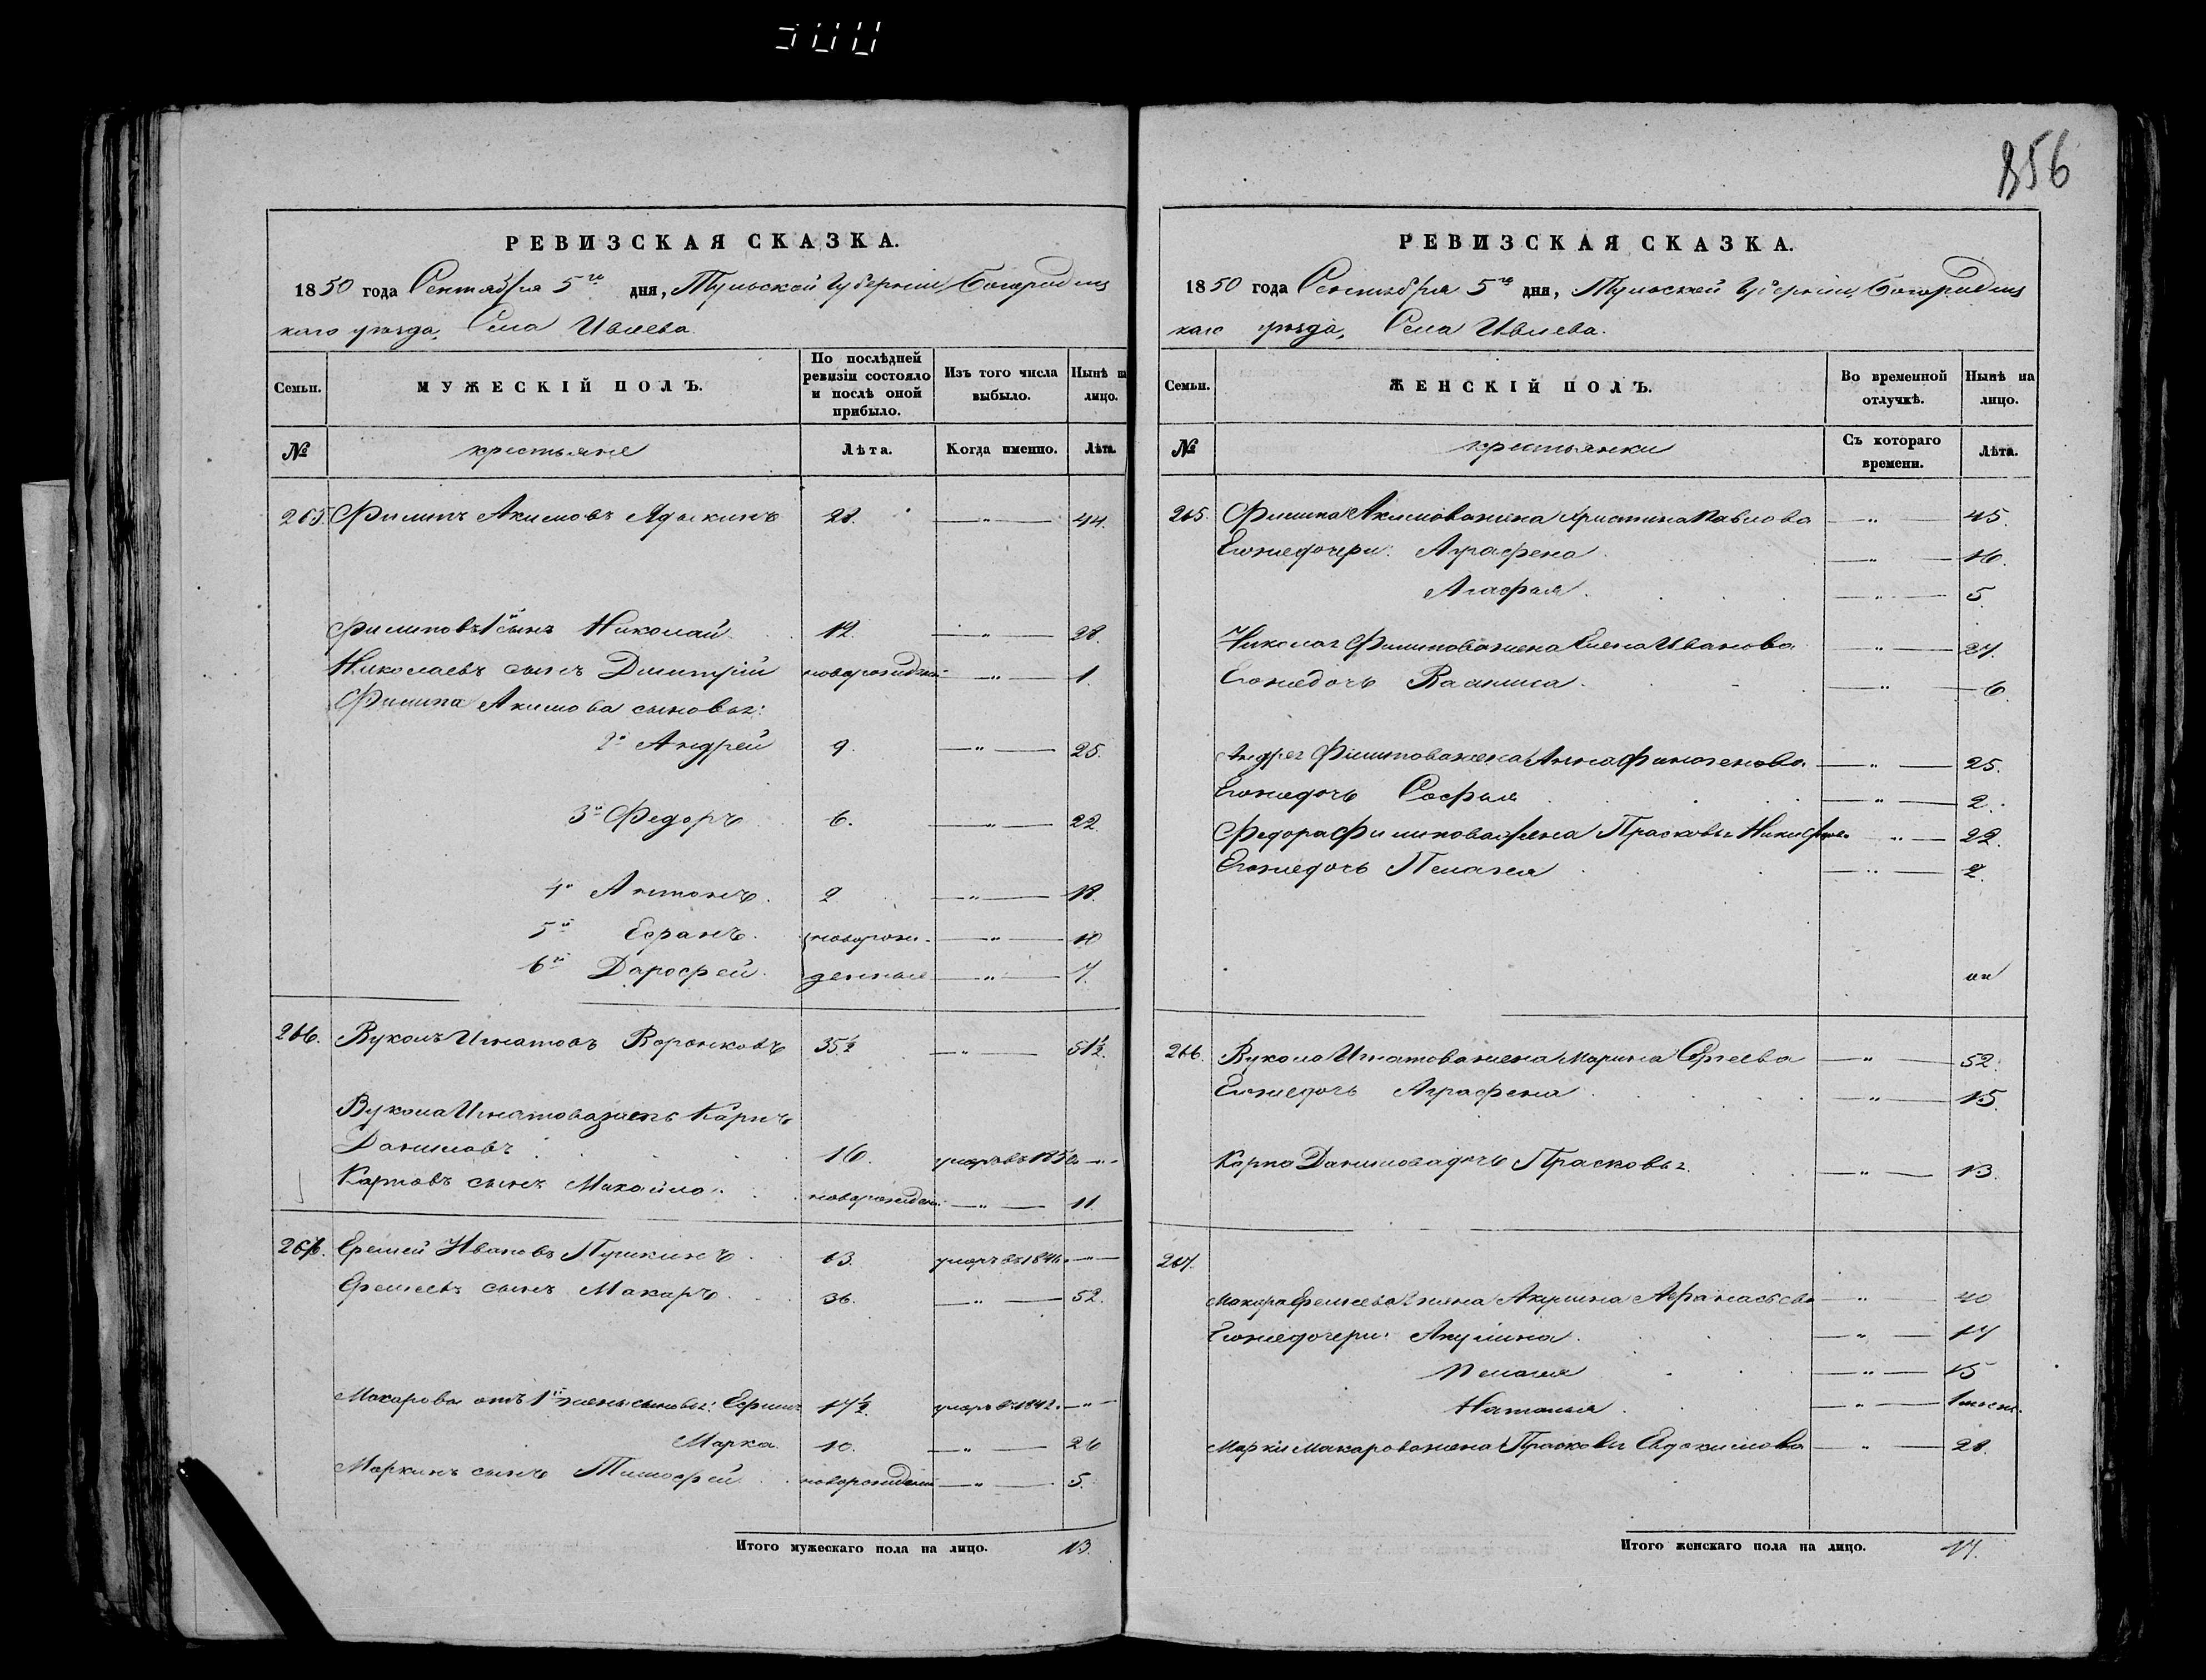 856
РЕВИЗСКАЯ СКАЗКА.
1850 года Сентября 5го дня, Тульской Губернии, Богородиц
каго уезда, Села Ивлева.
Семьи.
МУЖЕСКІЙ ПОЛЪ.
По послѣдней ревизіи состояло и послѣ оной прибыло.
Изъ того числа выбыло.
Нынѣ на лицо.
№
крестьяне
Лѣта.
Когда именно.
Лѣта.
265. Филипъ Акимовъ Ядыкинъ 28. —"— 44.
Филиповъ 1й сынъ Николай 12. —"— 28.
Николаевъ сынъ Дмитрій новорожден —"— 1.
Филипа Акимова сыновья:
2й Андрей 9. —"— 25.
3й Федоръ 6. —"— 22.
4й Антонъ. 2 —"— 18.
5й новорож- —"— 10
6й Дарофей. денные —"— 7.
266. Вуколъ Игнатовъ Воронковъ 35½ —"— 51½.
Вукола Игнатова зять Карпъ
Даниловъ 16. умеръ въ 1850 —"—
Карповъ сынъ Михайло новорожден. —"— 11.
267. Еремей Ивановъ Пушкинъ 63. умеръ въ 1846. —"—
Еремеевъ сынъ Макаръ 36. —"— 52.
Макарова отъ 1й жены сыновья: Ефимъ 17½ умеръ въ 1842. —"—
Марка 10. —"— 26
Маркинъ сынъ Тимофей новорожден —"— 5.
Итого мужескаго пола на лицо. 13.
РЕВИЗСКАЯ СКАЗКА.
1850 года Сентября 5го дня, Тульской Губернии, Богородиц
каго уезда, Села Ивлева.
Семьи.
ЖЕНСКІЙ ПОЛЪ.
Во временной отлучкѣ.
Нынѣ на лицо.
№
крестьянки
Съ котораго времени.
Лѣта.
265. Филипа Акимова жена Христина Павлова —"— 45.
Егожедочери: Аграфена —"— 16.
Агафья —"— 5.
Николая Филипова жена Елена Иванова —"— 27.
Егожедочь —"— 6.
Андрея Филипова жена Анна Финогенова —"— 25.
Егожедочь Софья —"— 2.
Федора Филипова жена Прасковья —"— 22.
Егожедочь Пелагея —"— 2.
266. Вукола Игнатова жена Марина Сергеева —"— 52.
Егожедочь Аграфена —"— 15.
Карпа Данилова дочь Прасковья. —"— 13.
267.
Макара Еремеева 2 жена Акулина Афанасьева —"— 40
Егожедочери: Акулина —"— 17
Пелагея —"— 15
Наталья —"— 1 месяц.
Марки Макарова жена Прасковья Евдокимова —"— 28.
Итого женскаго пола на лицо. 17.